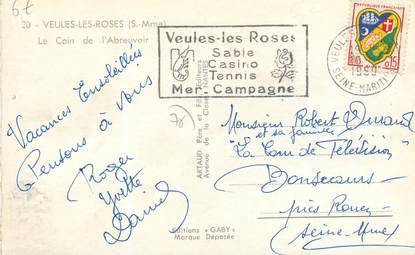 6€
20 - VEULES-LES-ROSES (S.-Mme)
Le Coin de l'Abreuvoir
Vacances Ensoleillées
Pensons à vous
Roger
Yvette
Daniel
Veules-les Roses
Sable
Casino
Tennis
Mer Campagne
RÉPUBLIQUE FRANÇAISE
0,15
VEULES
SEINE-MARITI
ARTAUD Père et Fils, Éditeurs
Avenue de la Close, NANTES
Editions "GABY"
Marque Déposée
Monsieur Robert Durand
et sa famille
"Le Coin de Télévision"
Bonsecours
près Rouen
Seine-Mme